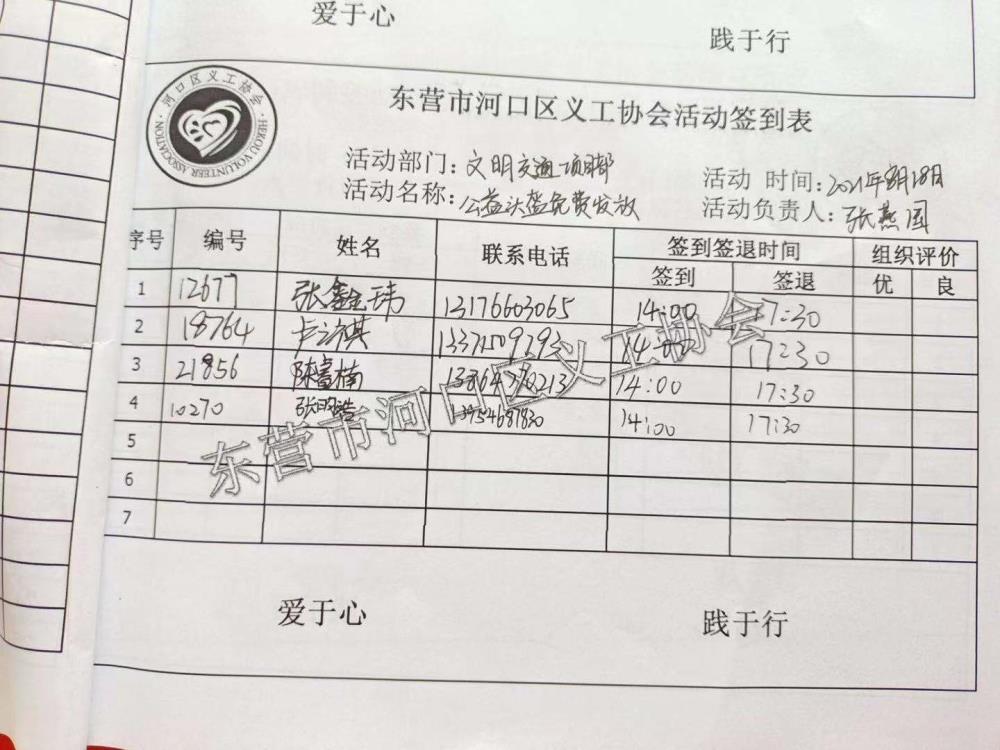 爱于心 践于行
河口区义工协会
HEKOU VOLUNTEER ASSOCIATION
东营市河口区义工协会活动签到表
活动部门：文明交通项部 活动 时间：2021年8月28日
活动名称：公益头盔免费发放 活动负责人：张燕国
序号 编号 姓名 联系电话 签到签退时间 组织评价
签到 签退 优 良
1 12677 张鑫玮 13176603065 14:00 17:30
2 18764 17:30
3 21856 陈富楠 14:00 17:30
4 10270 14:00 17:30
5
6
7
东营市河口区义工协会
爱于心 践于行